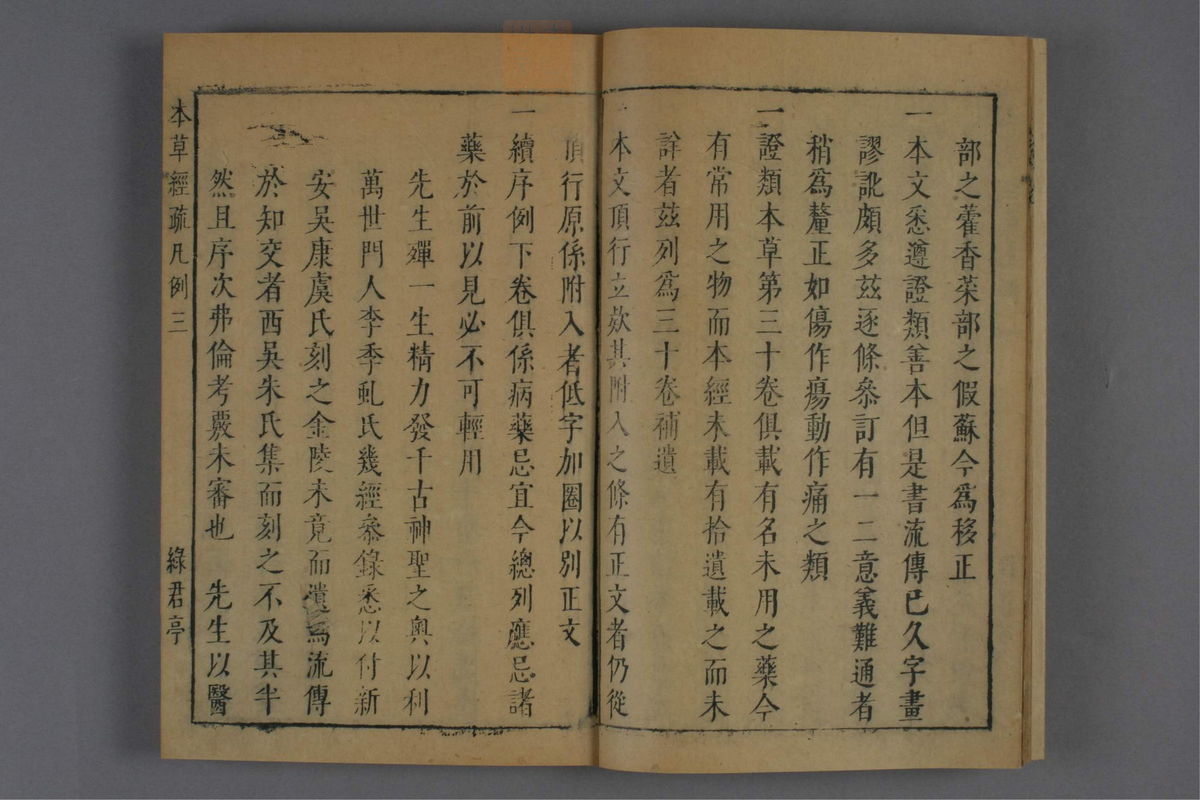 部之藿香菜部之假蘇今為移正
一本文悉遵證類善本但是書流傳已久字畫
謬訛頗多茲逐條叅訂有一二意義難通者
稍為釐正如傷作瘍動作痛之類
一證類本草第三十卷俱載有名未用之藥今
有常用之物而本經未載有拾遺載之而未
詳者茲列為三十卷補遺
一本文頂行立欵其附入之條有正文者仍從
頂行原係附入者低字加圈以別正文
一續序例下卷俱係病藥忌宜今總列應忌諸
藥於前以見必不可輕用
先生殫一生精力發千古神聖之奧以利
萬世門人李季虬氏幾經叅錄悉以付新
安吳康虞氏刻之金陵未竟而遺焉流傳
於知交者西吳朱氏集而刻之不及其半
然且序次弗倫考覈未審也　先生以醫
本草經疏凡例　三　綠君亭